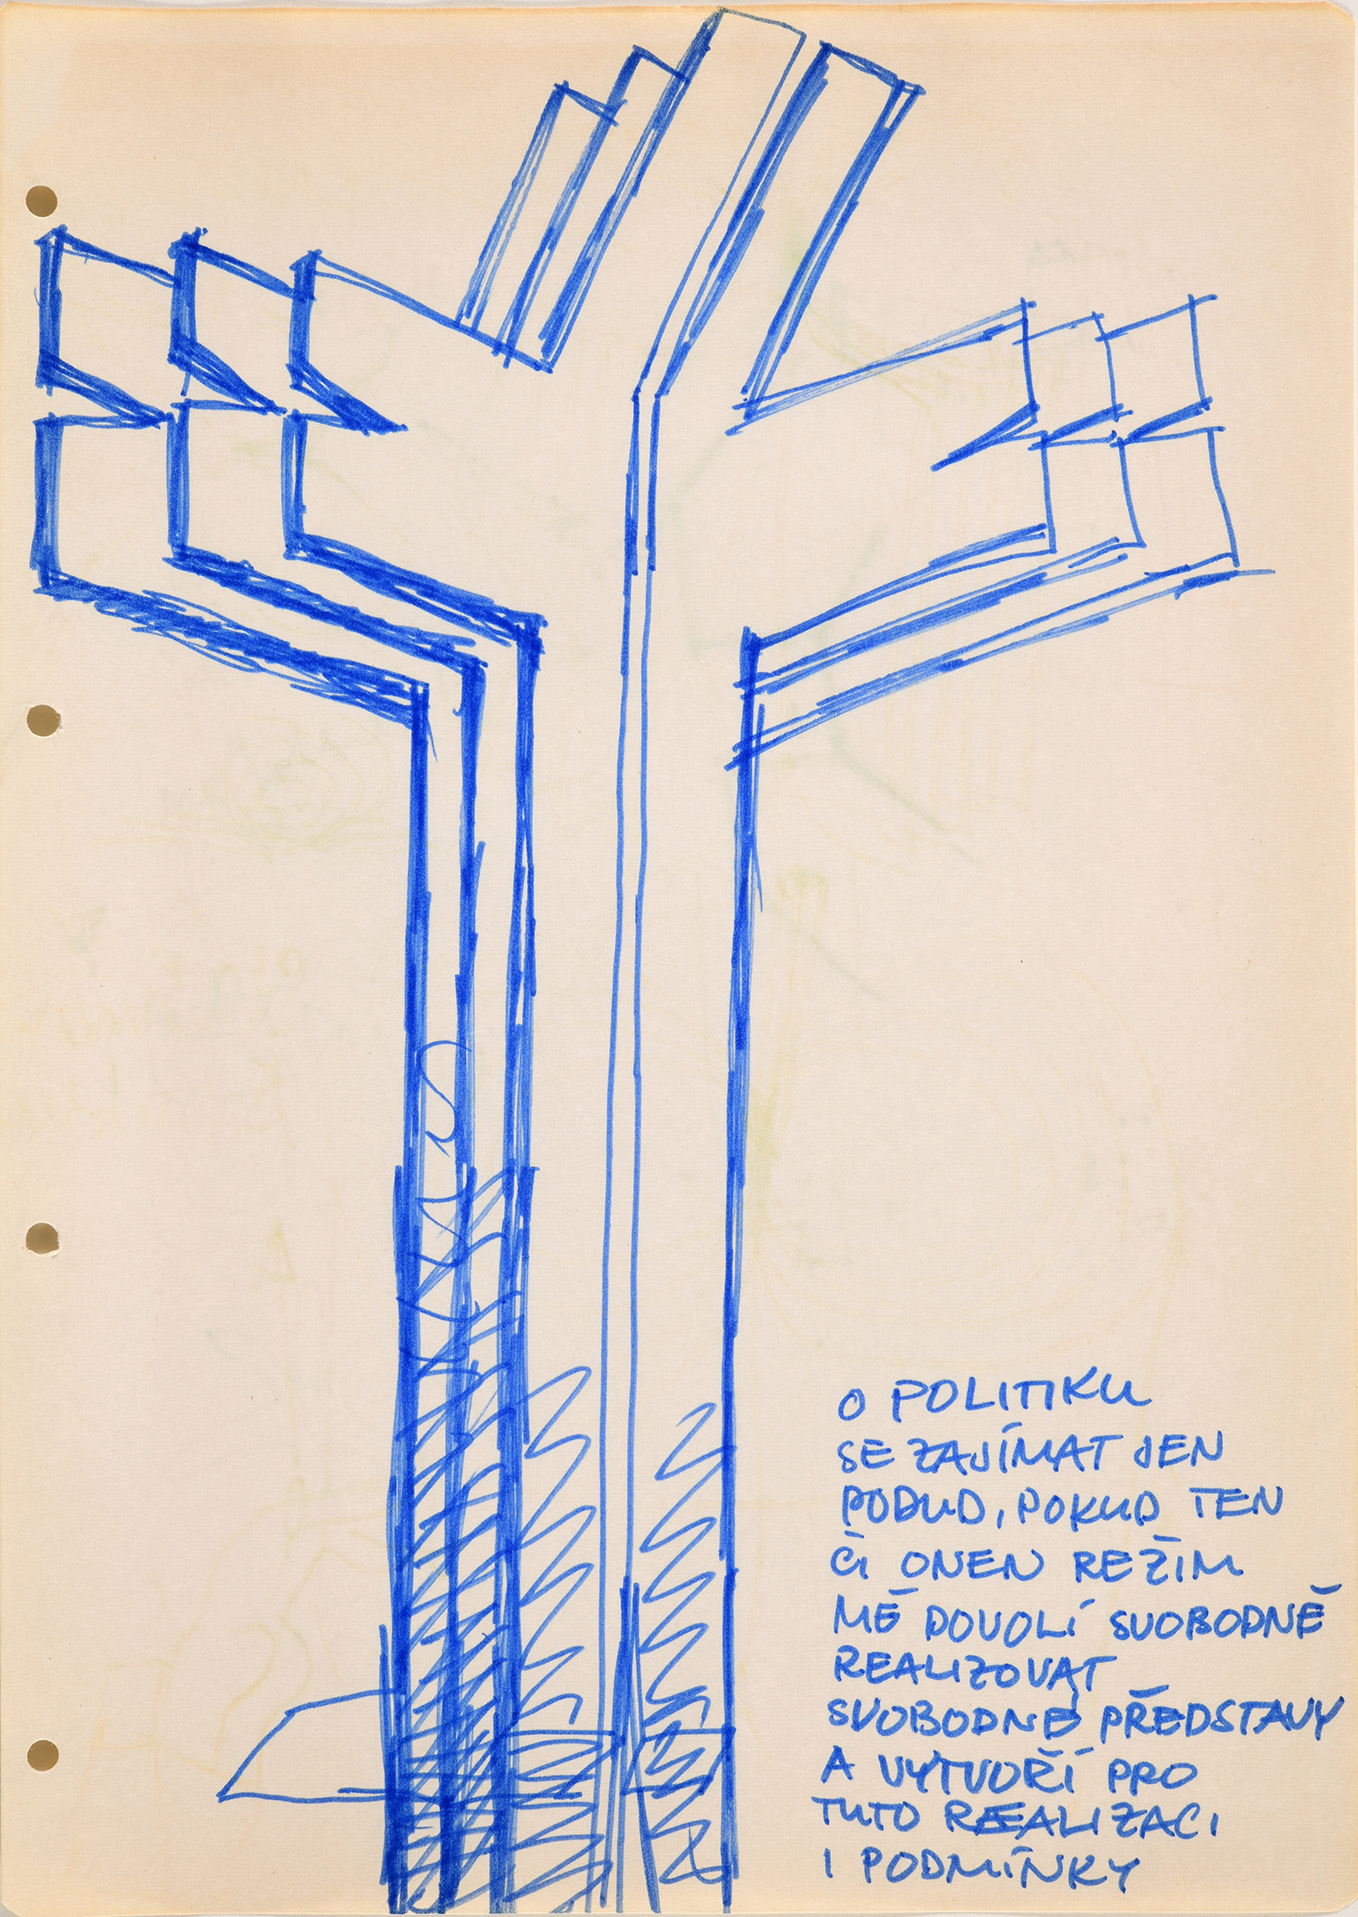 O POLITIKU
SE ZAJÍMAT JEN
PODUD, POKUD TEN
ČI ONEN REŽIM
MĚ DOVOLÍ SVOBODNĚ
REALIZOVAT
SVOBODNÉ PŘEDSTAVY
A VYTVOŘÍ PRO
TUTO REALIZACI
I PODMÍNKY